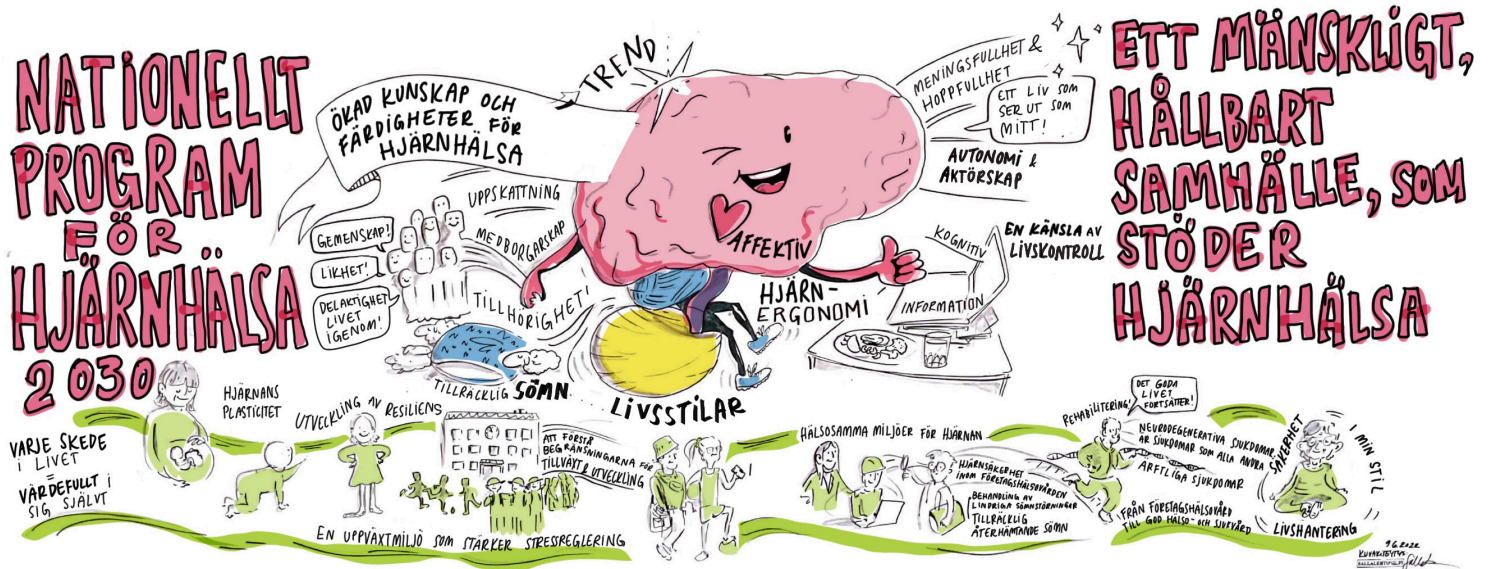 NATIONELLT
PROGRAM
FÖR
HJÄRNHÄLSA
2030
ÖKAD KUNSKAP OCH
FÄRDIGHETER FÖR
HJÄRNHÄLSA
TREND
MENINGSFULLHET &
HOPPFULLHET
ETT LIV SOM
SER UT SOM
MITT!
AUTONOMI &
AKTÖRSKAP
ETT MÄNSKLIGT,
HÅLLBART
SAMHÄLLE, SOM
STÖDER
HJÄRNHÄLSA
UPPSKATTNING
MEDBORGARSKAP
TILLHÖRIGHET!
GEMENSKAP!
LIKHET!
DELAKTIGHET
LIVET
IGENOM!
AFFEKTIV
KOGNITIV
EN KÄNSLA AV
LIVSKONTROLL
INFORMATION
HJÄRN-
ERGONOMI
TILLRÄCKLIG SÖMN
LIVSSTILAR
VARJE SKEDE
I LIVET
=
VÄRDEFULLT I
SIG SJÄLVT
HJÄRNANS
PLASTICITET
UTVECKLING AV RESILIENS
ATT FÖRSTÅ
BEGRÄNSNINGARNA FÖR
TILLVÄXT & UTVECKLING
EN UPPVÄXTMILJÖ SOM STÄRKER STRESSREGLERING
HÄLSOSAMMA MILJÖER FÖR HJÄRNAN
HJÄRNSÄKERHET
INOM FÖRETAGSHÄLSOVÅRDEN
BEHANDLING AV
LINDRIGA SÖMNSTÖRNINGER
TILLRÄCKLIG
ÅTERHÄMTANDE SÖMN
REHABILITERING!
DET GODA
LIVET
FORTSÄTTER!
NEURODEGENERATIVA SJUKDOMAR
ÄR SJUKDOMAR SOM ALLA ANDRA
ÄRFTLIGA SJUKDOMAR
FRÅN FÖRETAGSHÄLSOVÅRD
TILL GOD HÄLSO- OCH SJUKVÅRD
SÄKERHET
I MIN STIL
LIVSHANTERING
9.6.2022
KUVAKITEYTYS